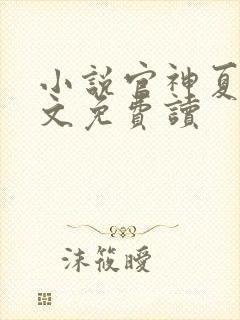 小說官神夏
文免費讀
沫筱曖